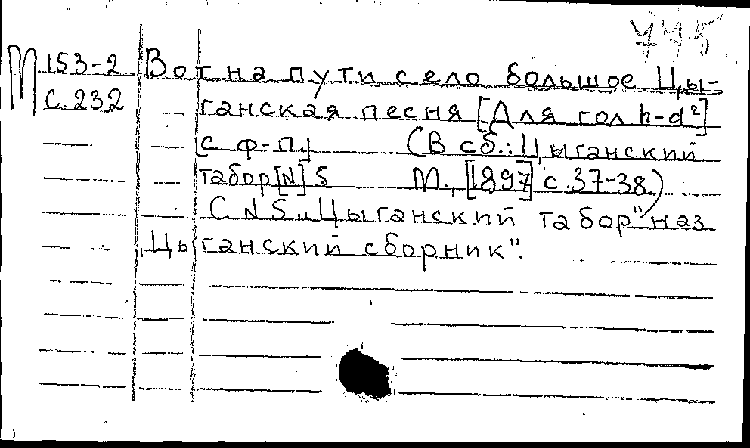 М 153-2 Вот на пути село большое Цы-
с. 232 ганская песня [Для гол h-d²]
с ф-п.] (В сб.: Цыганский
табор [N] 5 М., [1897] с. 37-38.)
С N 5 „Цыганский табор" наз
Цыганский сборник".